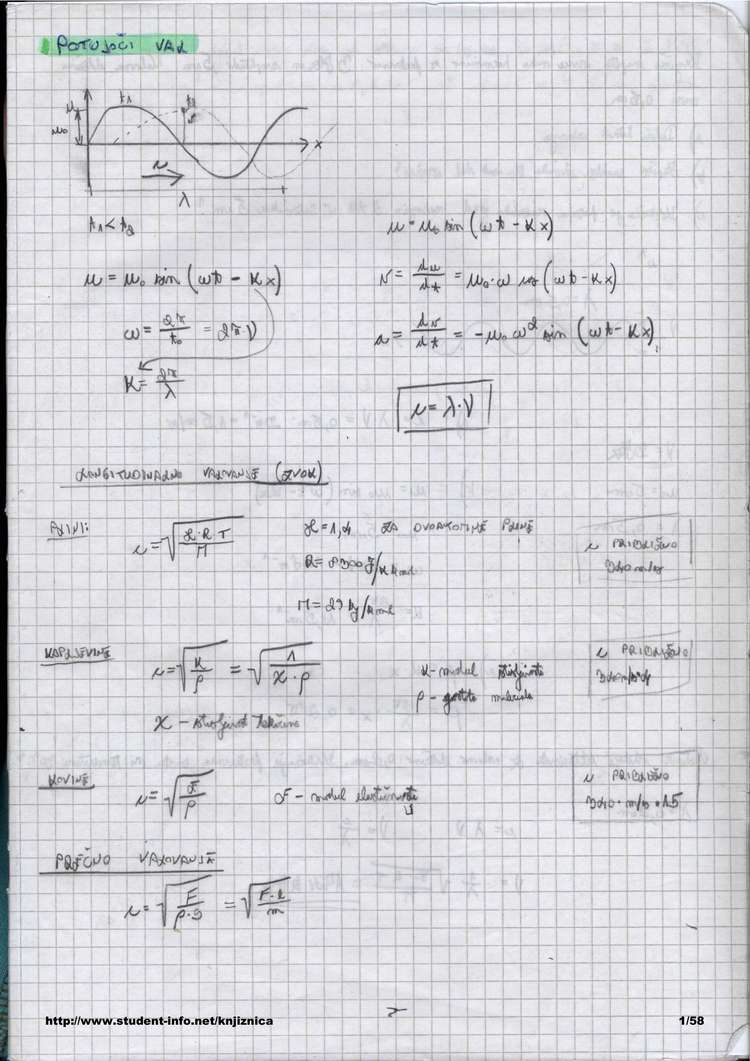 POTUJOČI VAL
u
u₀
t₁
t₂
x
λ
t₁ < t₂
u = u₀ sin (ωt - kx)
u = u₀ sin (ωt - kx)
ω = 2π/t₀ = 2π·ν
v = du/dt = u₀·ω cos (ωt - kx)
k = 2π/λ
a = dv/dt = -u₀ω² sin (ωt - kx)
c = λ·ν
LONGITUDINALNO VALOVANJE (ZVOK)
PLINI:
c = √(ϰ·R·T/M)
ϰ = 1,4 ZA DVOATOMNE PLINE
R = 8300 J/K kmol
M = 29 kg/kmol
c PRIBLIŽNO
340 m/s
KAPLJEVINE
c = √(K/ρ) = √(1/(χ·ρ))
K - modul stisljivosti
ρ - gostota
χ - stisljivost tekočine
c PRIBLIŽNO
KOVINE
c = √(E/ρ)
E - modul elastičnosti
c PRIBLIŽNO
340 · m/s · 15
PREČNO VALOVANJE
c = √(F/(ρ·S)) = √(F·l/m)
http://www.student-info.net/knjiznica
1/58